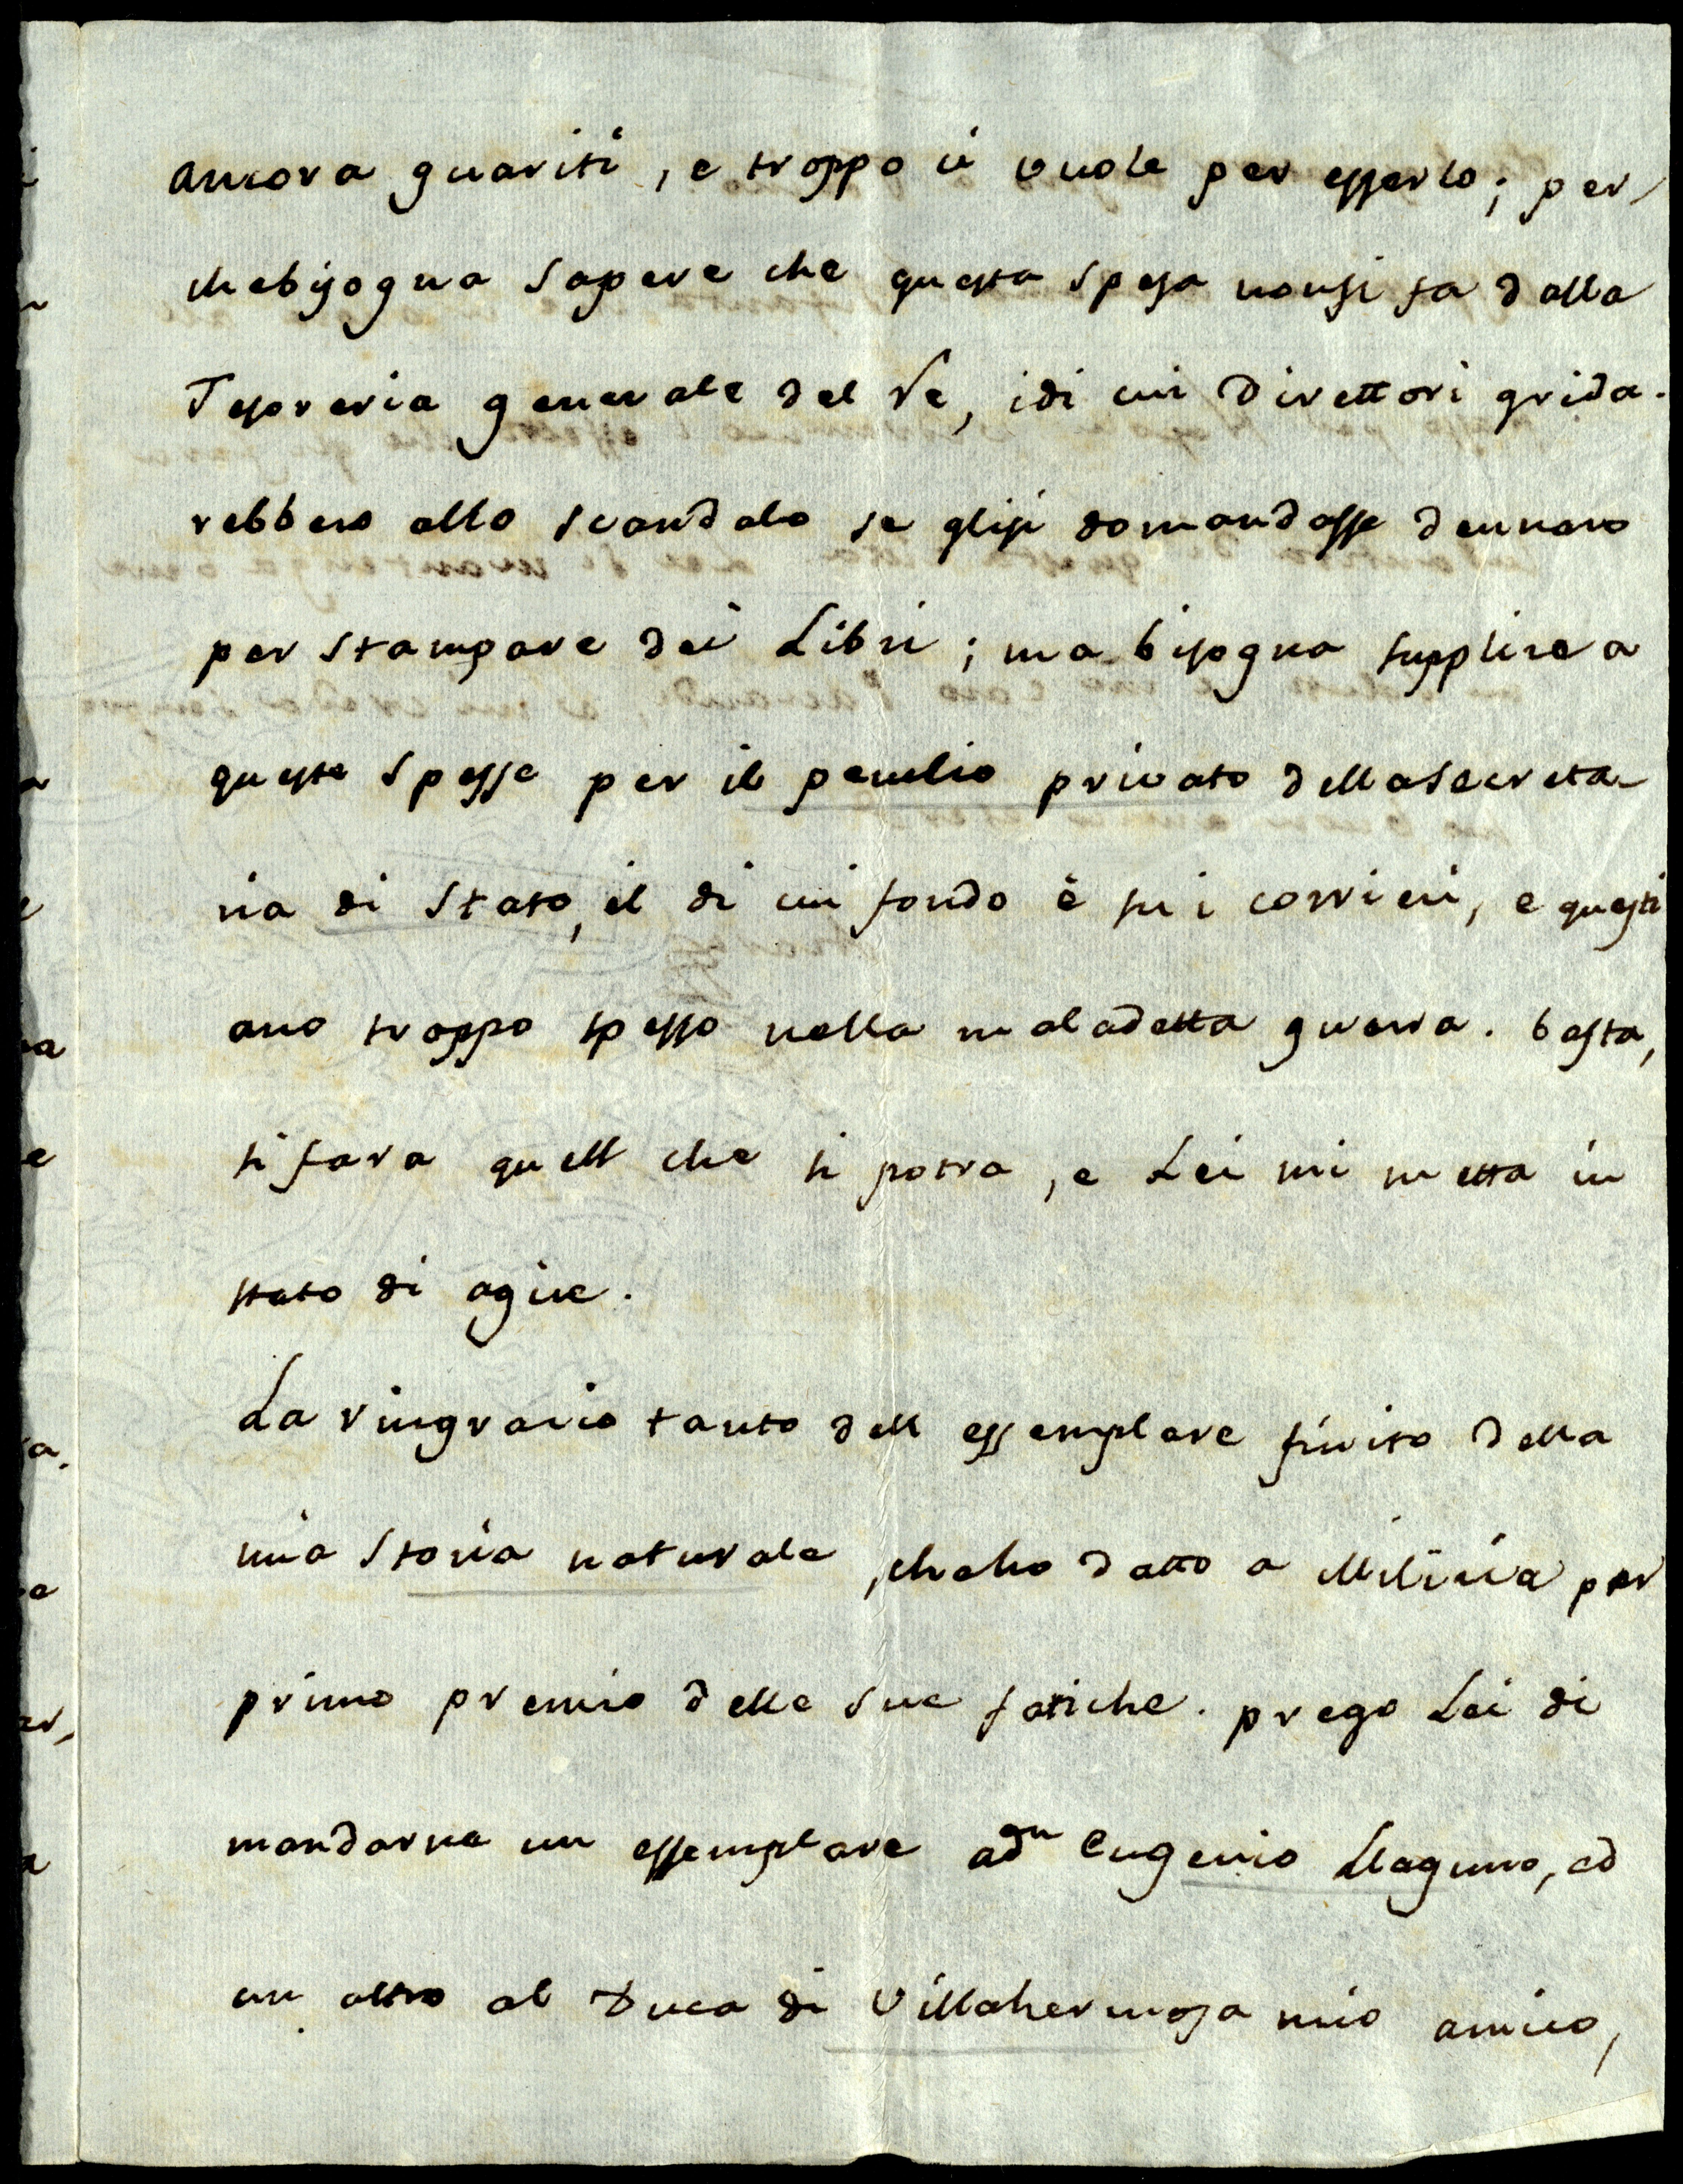 ancora guariti, e troppo ci vuole per esserlo; per,
che bisogna sapere che questa spesa non si fa dalla
Tesoreria generale del Re, i di cui Direttori grida-
rebbero allo scandalo se gli si domandasse dennaro
per stampare dei Libri; ma bisogna supplire a
queste spesse per il peculio privato della Secreta-
ria di Stato, il di cui fondo è su i corrieri, e questi
ano troppo spesso nella maladetta guerra. basta,
si fara quell che si potra, e Lei mi metta in
stato di agire.
La ringracio tanto dell essemplare finito della
mia Storia naturale, che ho datto a Milizia per
primo premio delle sue fatiche. prego Lei di
mandarne un essemplare a dn Eugenio Llaguno, ed
un altro al Duca di Villahermosa mio amico,